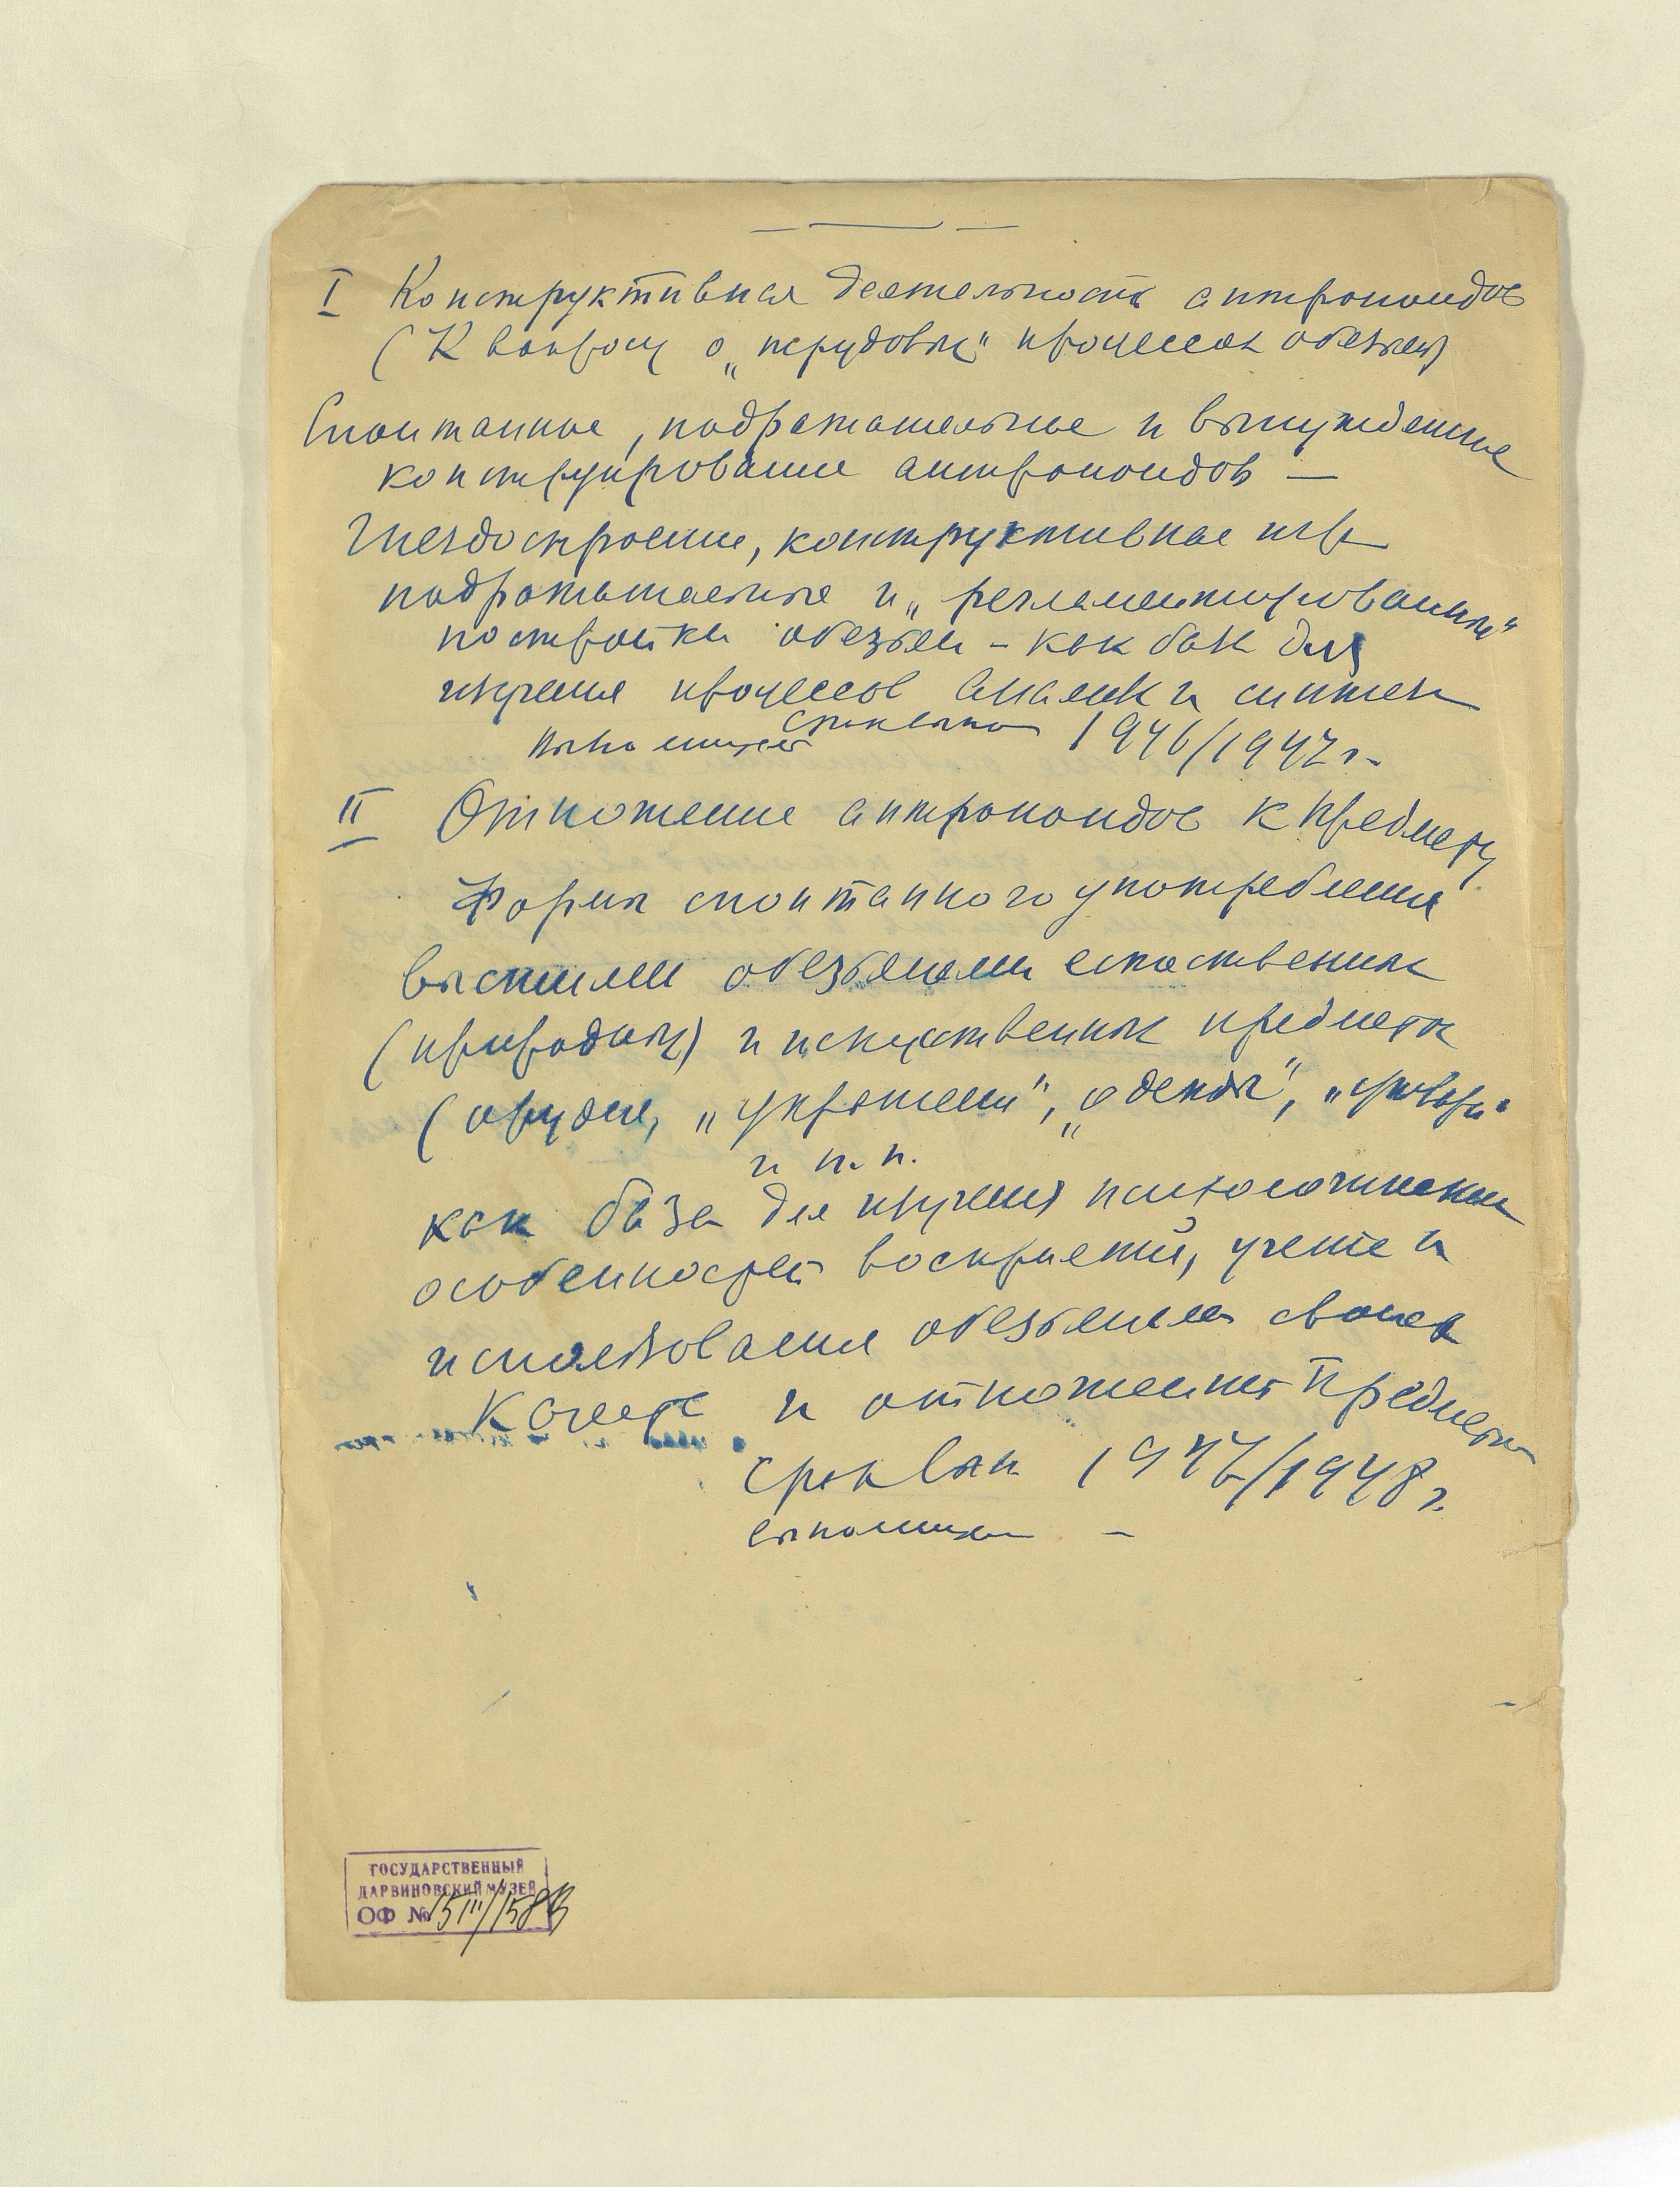 I Конструктивная деятельность антропоидов
(К вопросу о „трудовых" процессах обезьян)
Спонтанное, подражательное и вынужденное
конструирование антропоидов —
Гнездостроение, конструктивные игры
подражательные и „регламентированные"
постройки обезьян – как база для
изучения процессов анализа и синтеза
Срок выполнения 1946/1947 г.
II Отношение антропоидов к предмету
Формы спонтанного употребления
высшими обезьянами естественных
(природных) и искусственных предметов
(орудие, „украшения", „одежда", „утварь"
и т. п.
как база для изучения психологических
особенностей восприятия, учета и
использования обезьянами свойств
качеств и отношений предметов
Срок вып 1947/1948 г.
выполнения –
ГОСУДАРСТВЕННЫЙ
ДАРВИНОВСКИЙ МУЗЕЙ
ОФ № 15111/158